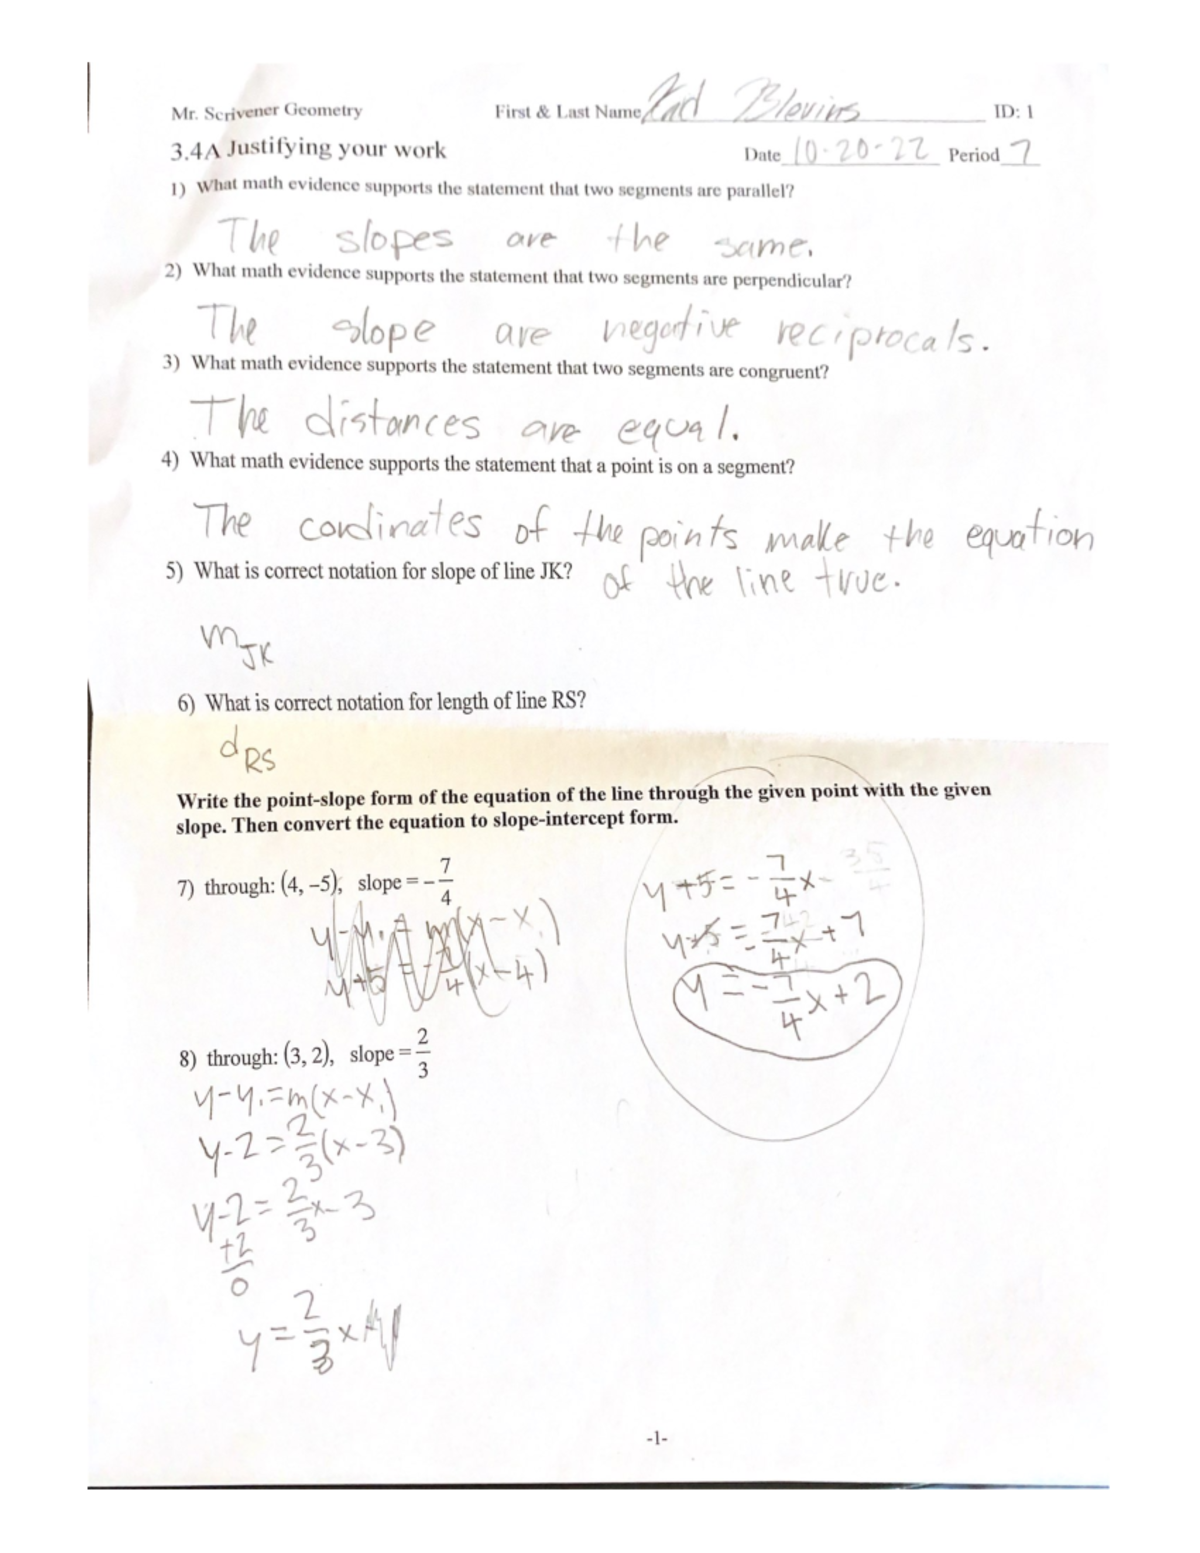 Mr. Scrivener Geometry First & Last Name Blevins ID: 1
3.4A Justifying your work Date 10-20-22 Period 7
1) What math evidence supports the statement that two segments are parallel?
The slopes are the same.
2) What math evidence supports the statement that two segments are perpendicular?
The slope are negative reciprocals.
3) What math evidence supports the statement that two segments are congruent?
The distances are equal.
4) What math evidence supports the statement that a point is on a segment?
The cordinates of the points make the equation
of the line true.
5) What is correct notation for slope of line JK?
m_JK
6) What is correct notation for length of line RS?
d_RS
Write the point-slope form of the equation of the line through the given point with the given
slope. Then convert the equation to slope-intercept form.
7) through: (4, –5), slope = –7/4
y-y₁ = m(x-x₁)
y+5 = -7/4(x-4)
y+5 = -7/4x- 35/4
y+5 = -7/4x+7
y = -7/4x+2
8) through: (3, 2), slope = 2/3
y-y₁=m(x-x₁)
y-2=2/3(x-3)
y-2=2/3x-3
+2
0
y=2/3x
-1-